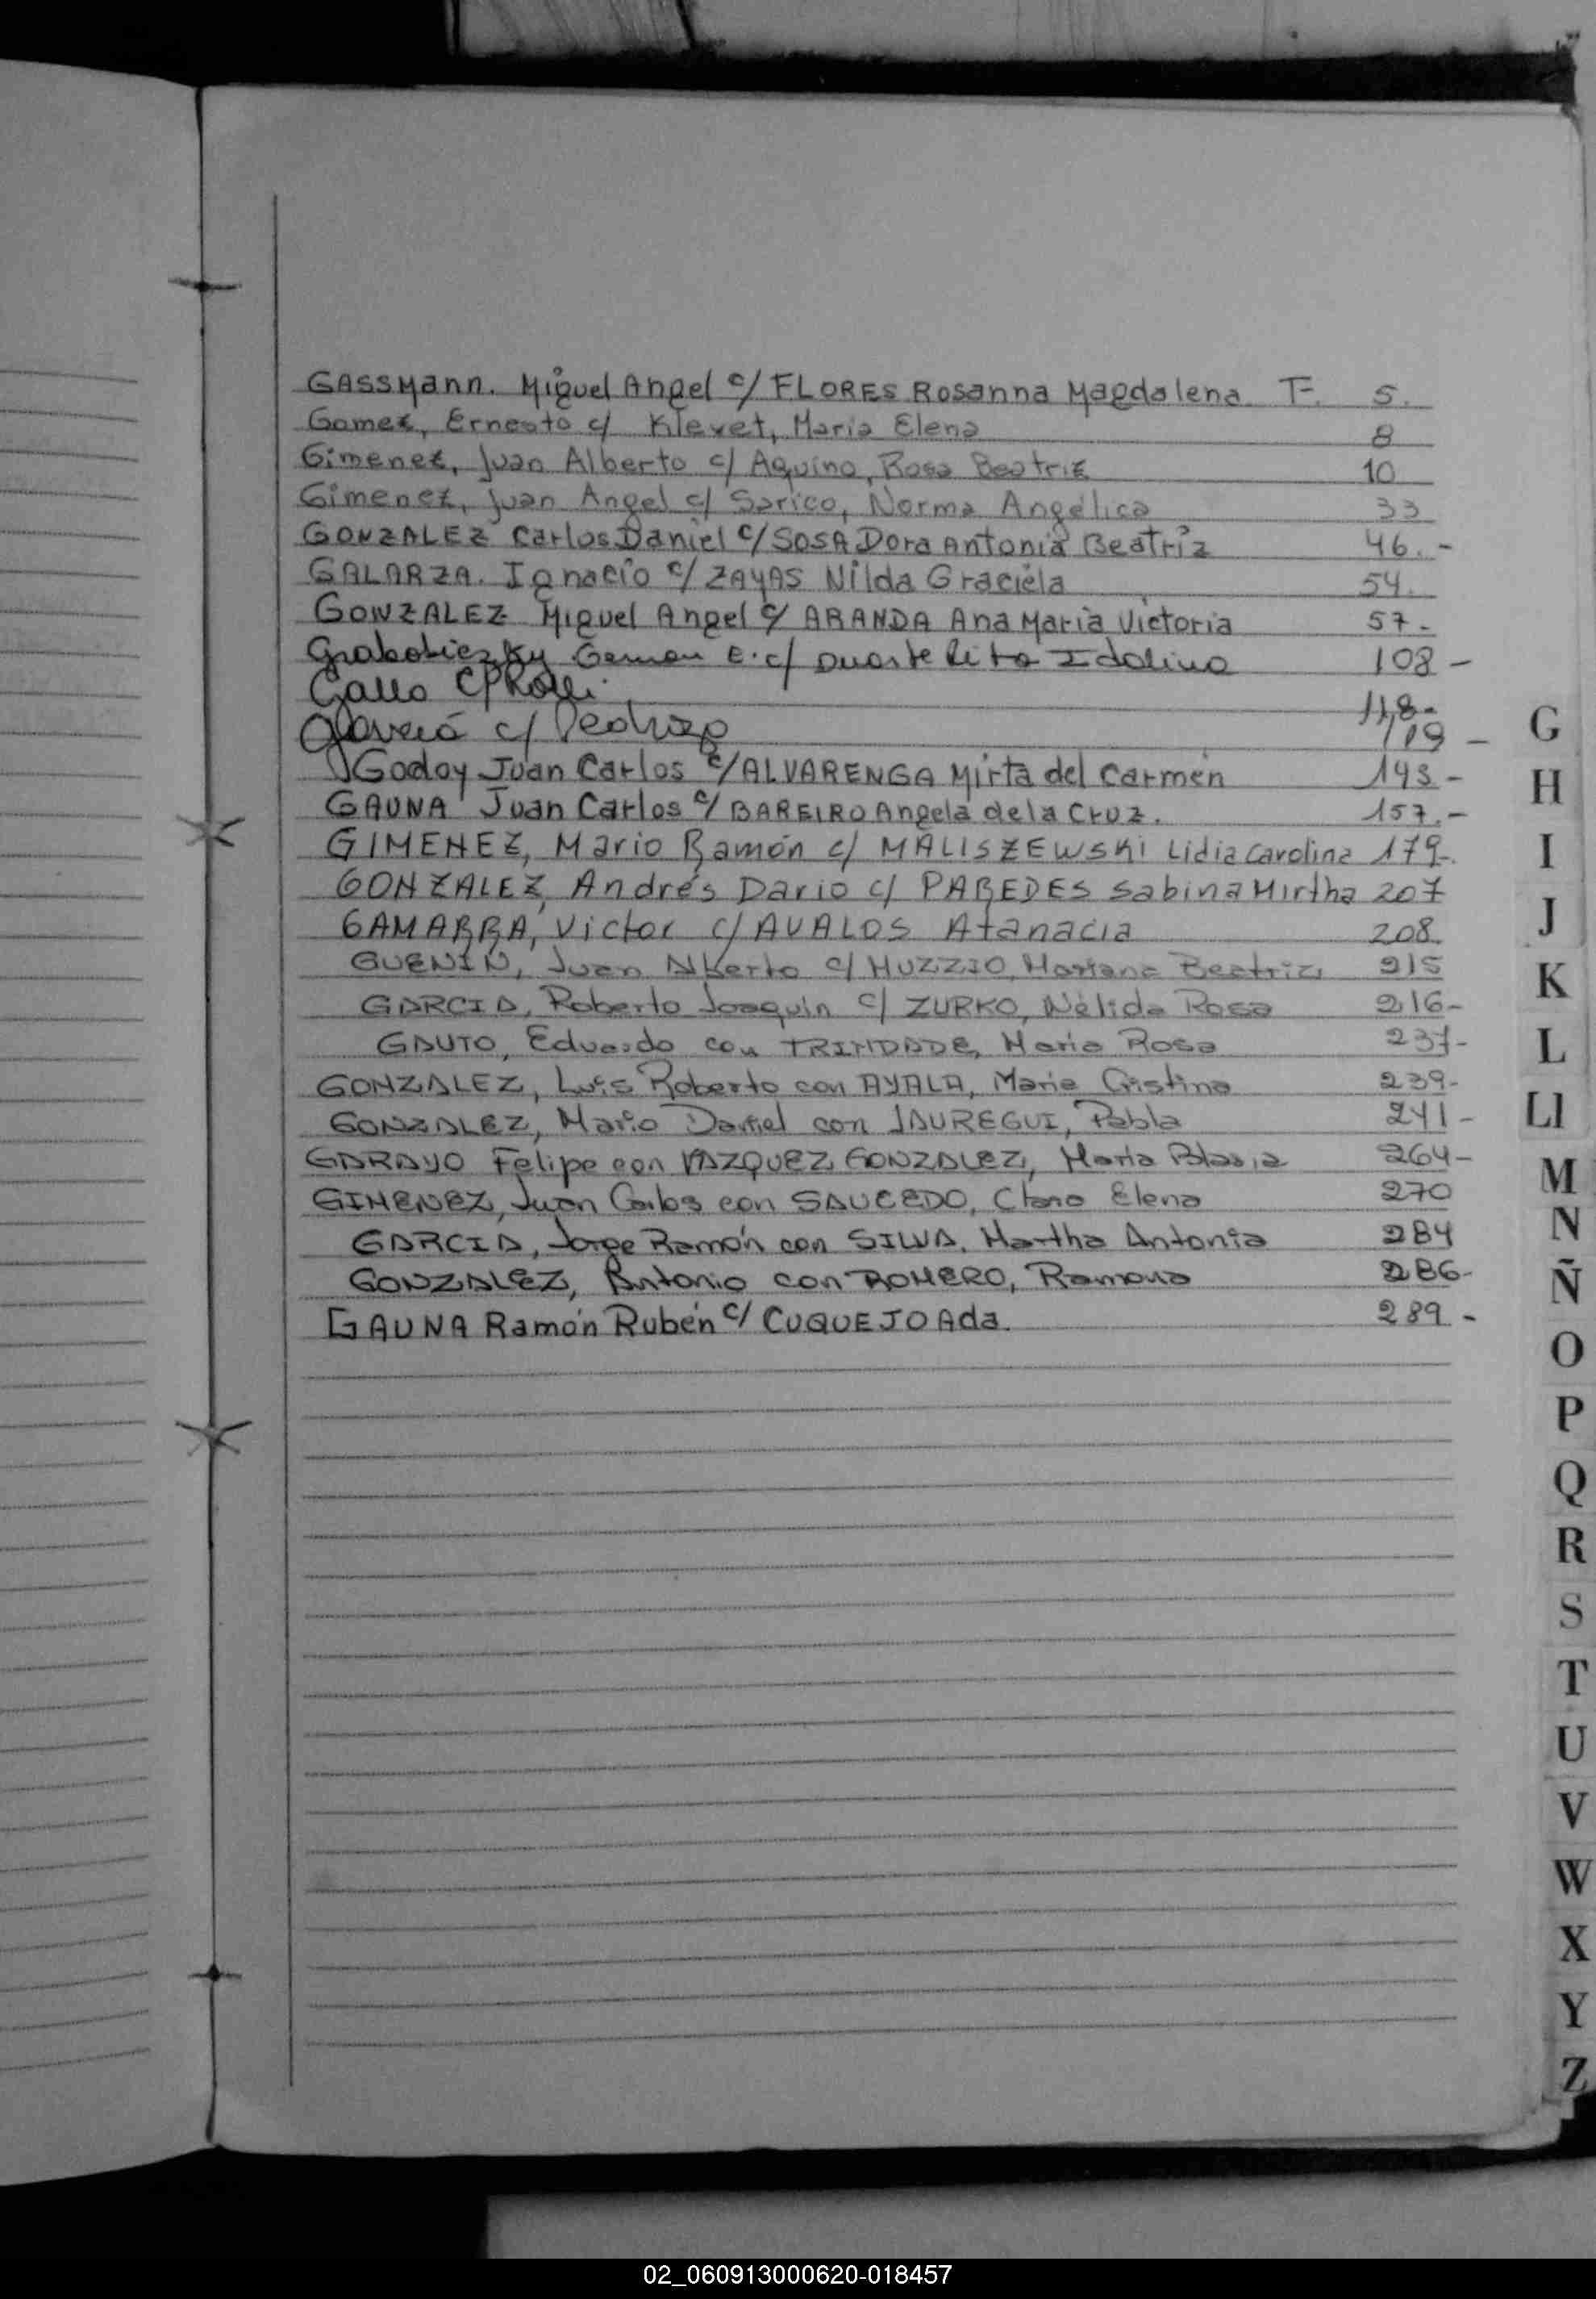 GASSMann. Miguel Angel c/ FLORES Rosanna Magdalena F. 5.
Gomez, Ernesto c/ Klevet, Maria Elena 8
Gimenez, Juan Alberto c/ Aquino, Rosa Beatriz 10
Gimenez, Juan Angel c/ Sarico, Norma Angélica 33
GONZALEZ Carlos Daniel c/ SOSA Dora Antonia Beatriz 46.-
GALARZA. Ignacio c/ ZAYAS Nilda Graciela 54.
GONZALEZ Miguel Angel c/ ARANDA Ana Maria Victoria 57-
E. c/ Duarte Idalina 108-
Gallo c/ 118-
c/ 119-
Godoy Juan Carlos c/ ALVARENGA Mirta del Carmen 143-
GAUNA Juan Carlos c/ BAREIRO Angela de la Cruz. 157.-
GIMENEZ, Mario Ramón c/ MALISZEWSKI Lidia Carolina 179-
GONZALEZ, Andrés Dario c/ PAREDES Sabina Mirtha 207
GAMARRA, Victor c/ AVALOS Atanacia 208
GUENIN, Juan Alberto c/ MUZZIO, Mariana Beatriz 215
GARCIA, Roberto Joaquin c/ ZURKO, Nélida Rosa 216-
GAUTO, Eduardo con TRINDADE, Maria Rosa 237-
GONZALEZ, Luis Roberto con AYALA, Maria Cristina 239-
GONZALEZ, Mario Daniel con JAUREGUI, Pabla 241-
GARAYO Felipe con VAZQUEZ GONZALEZ, Maria Blasia 264-
GIMENEZ, Juan Carlos con SAUCEDO, Clara Elena 270
GARCIA, Jorge Ramón con SILVA, Martha Antonia 284
GONZALEZ, Antonio con ROMERO, Ramona 286-
GAUNA Ramón Rubén c/ CUQUEJO Ada. 289-
G
H
I
J
K
L
Ll
M
N
Ñ
O
P
Q
R
S
T
U
V
W
X
Y
Z
02_060913000620-018457